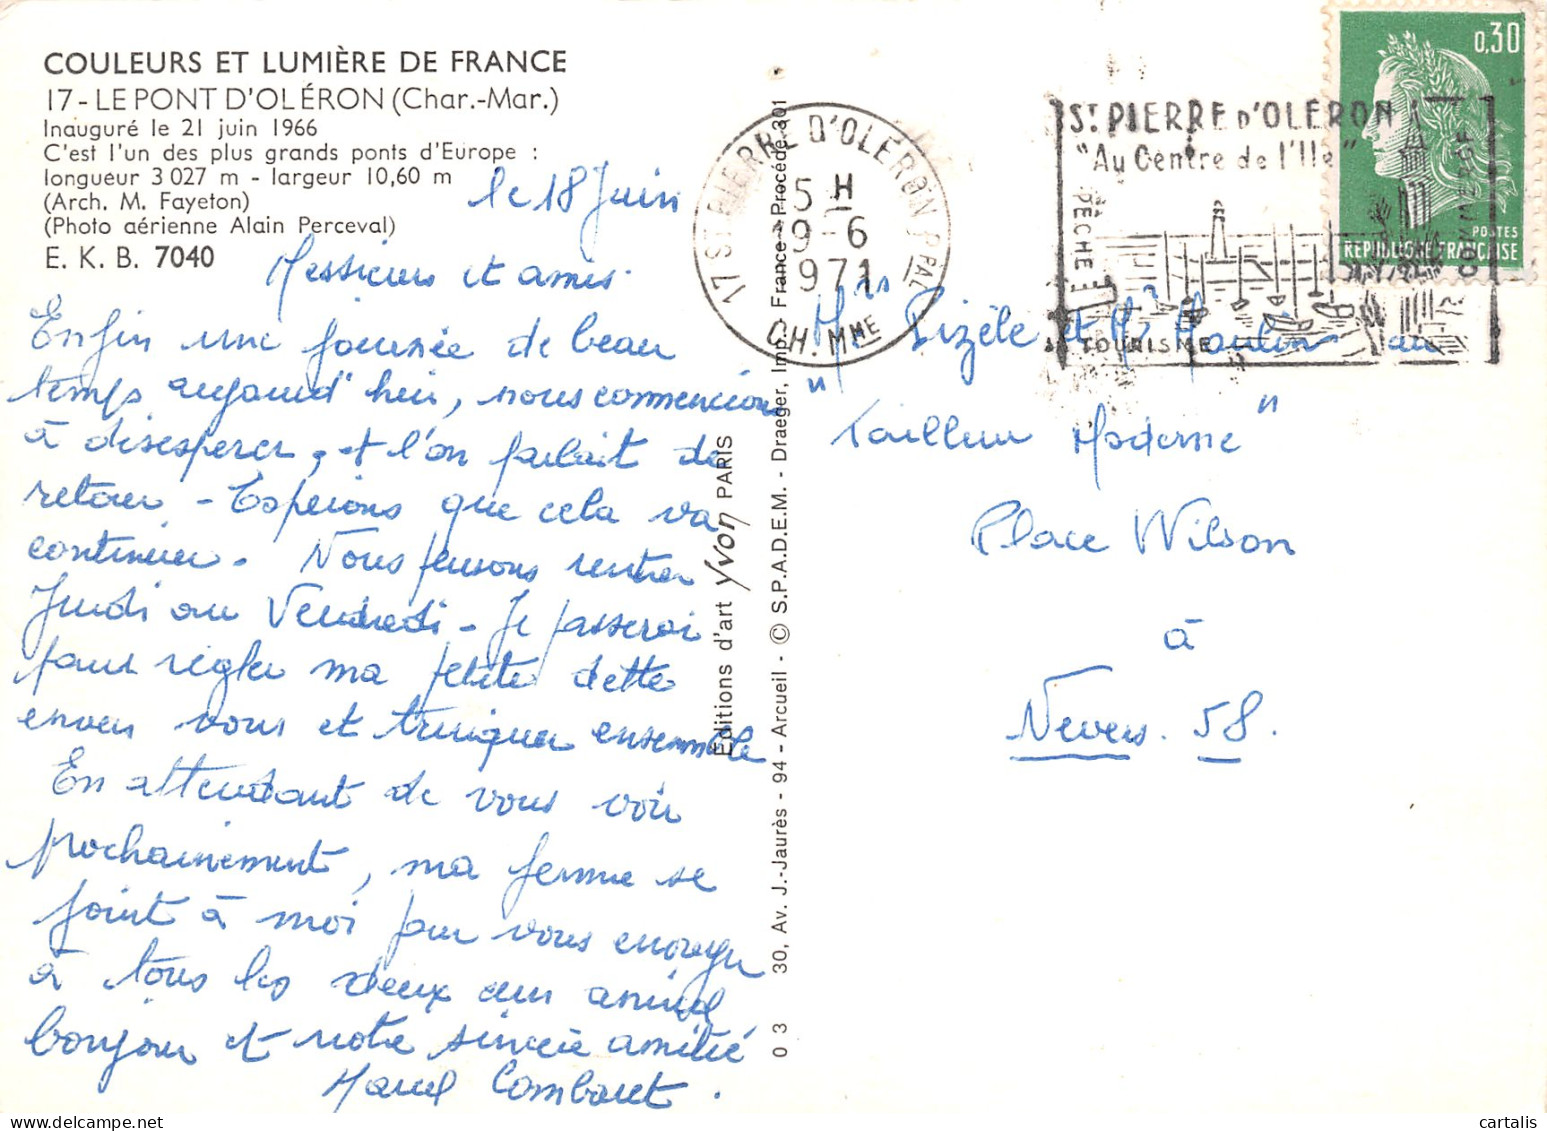 COULEURS ET LUMIÈRE DE FRANCE
17 - LE PONT D'OLÉRON (Char.-Mar.)
Inauguré le 21 juin 1966
C'est l'un des plus grands ponts d'Europe :
longueur 3 027 m - largeur 10,60 m
(Arch. M. Fayeton)
(Photo aérienne Alain Perceval)
E. K. B. 7040
le 18 Juin
Messieurs et amis.
Enfin une journée de beau
temps aujourd'hui, nous commencions
à désespérer, et l'on parlait de
retour - Espérons que cela va
continuer. Nous pensons rentrer
Jeudi ou Vendredi - Je passerai
pour régler ma petite dette
envers vous et trinquer ensemble
En attendant de vous voir
prochainement, ma femme se
joint à moi pour vous envoyer
à tous les deux un amical
bonjour et notre sincère amitié
Marcel Combaret.
Editions d'art Yvon PARIS
30, Av. J.-Jaurès - 94 - Arcueil - © S.P.A.D.E.M. - Draeger, Imp. - France - Procédé 301
0 3
17 ST PIERRE D'OLERON PPAL
CH. MME
15 H
19-6
1971
ST PIERRE D'OLERON
"Au Centre de l'Ile"
PECHE
TOURISME
COMMERCE
0,30
POSTES
REPUBLIQUE FRANCAISE
Mrs Pizèle et Moulin au
"Tailleur Moderne"
Place Wilson
à
Nevers. 58.
cartalis